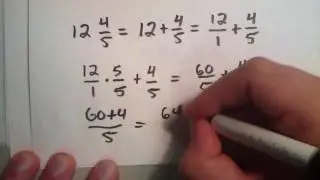 12 4/5 = 12 + 4/5 = 12/1 + 4/5
12/1 · 5/5 + 4/5 = 60/5 + 4
60+4/5 = 64